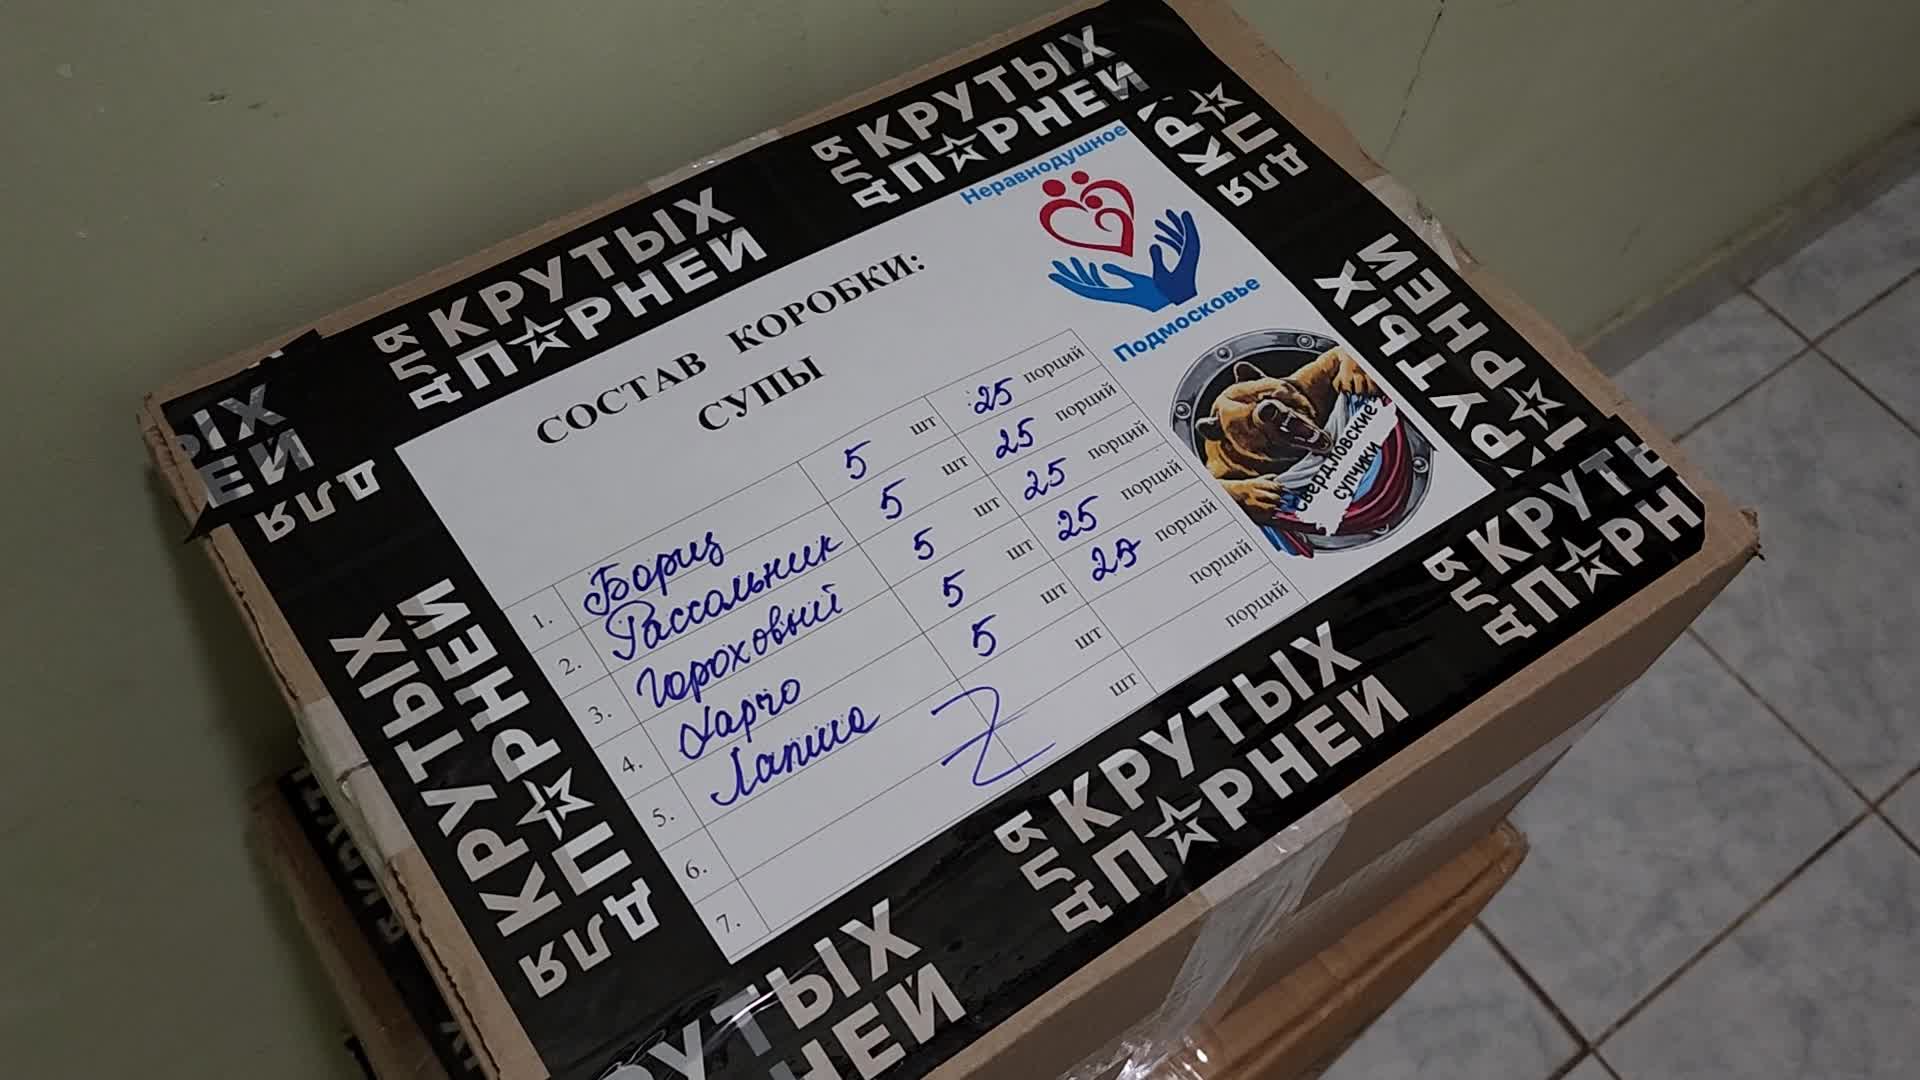 ДЛЯ КРУТЫХ ПАРНЕЙ
ДЛЯ КРУТЫХ ПАРНЕЙ
Неравнодушное
Подмосковье
СОСТАВ КОРОБКИ:
СУПЫ
1. Борщ 5 шт 25 порций
2. Рассольник 5 шт 25 порций
3. Гороховый 5 шт 25 порций
4. Харчо 5 шт 25 порций
5. Лапша 5 шт 25 порций
6. шт порций
7. шт порций
Свердловские
супчики
ДЛЯ КРУТЫХ ПАРНЕЙ
КРУТЫХ ПАРНЕЙ
ДЛЯ КРУТЫХ ПАРНЕЙ